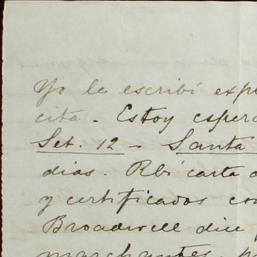 Yo le escribí exp
cita. Estoy esper
Set. 12 - Santa
dias. Rbí carta
y certificados co
Broadwell dice
marchantes,